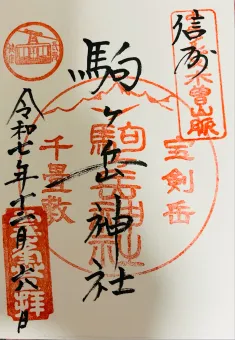 信州
中央木曽山脈
宝剣岳
駒ヶ岳神社
駒ヶ岳神社
千畳敷
令和七年十二月六日
登拝